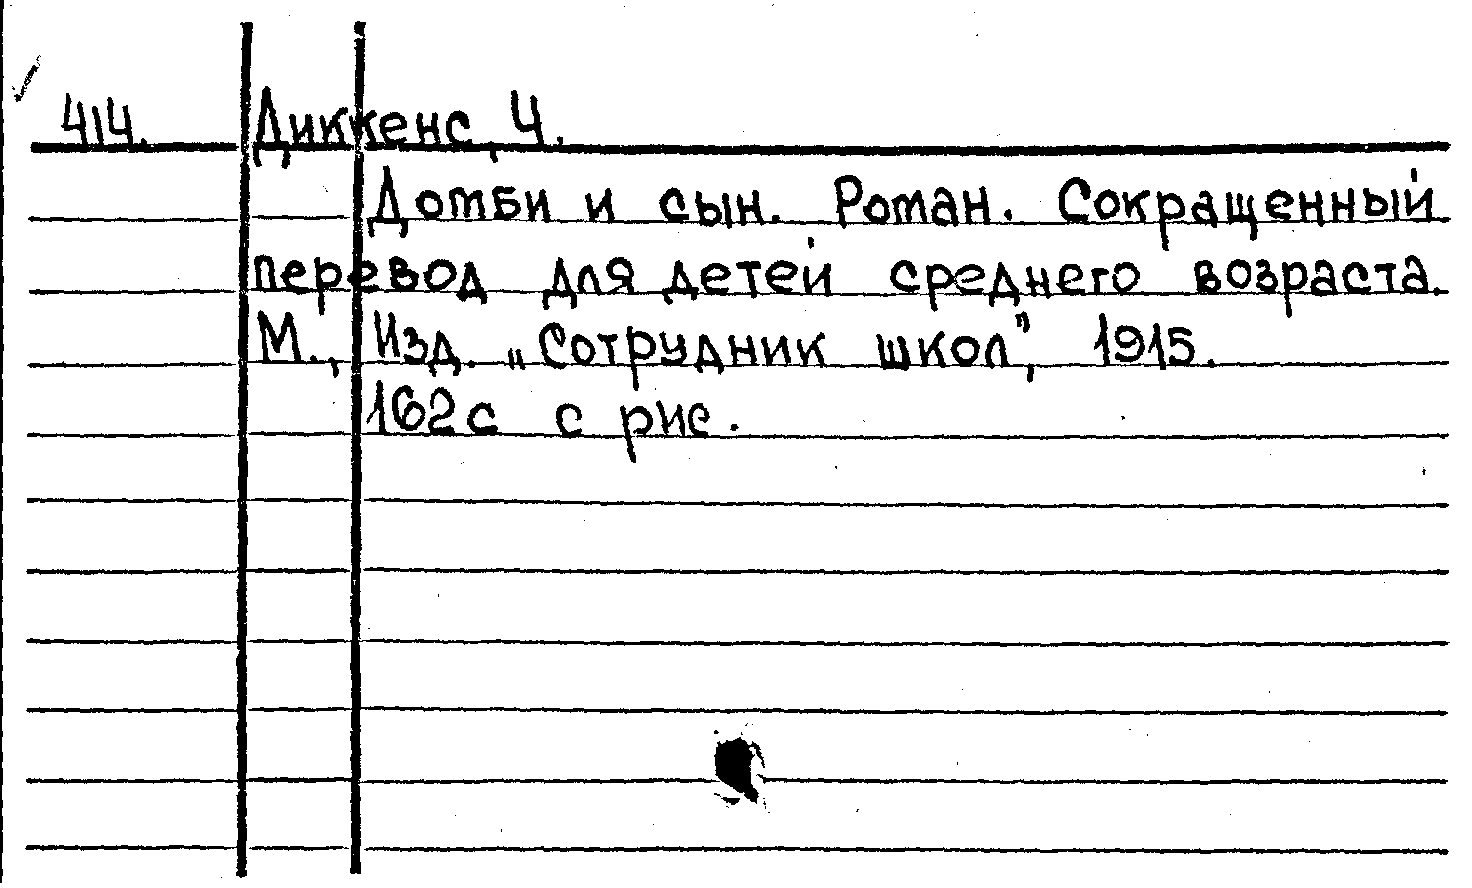 414. Диккенс, Ч.
Домби и сын. Роман. Сокращенный
перевод для детей среднего возраста.
М., Изд. „Сотрудник школ", 1915.
162с с рис.